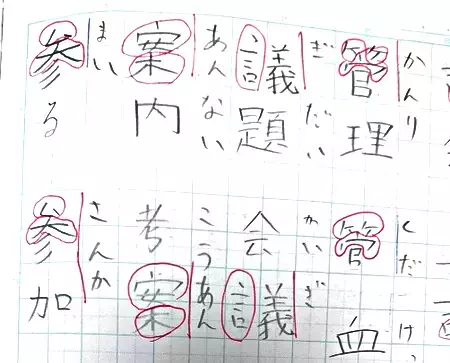 かんり くだ け
管理 管 血
ぎだい かいぎ
議題 会議
あんない こうあん
案内 考案
まい さんか
参る 参加